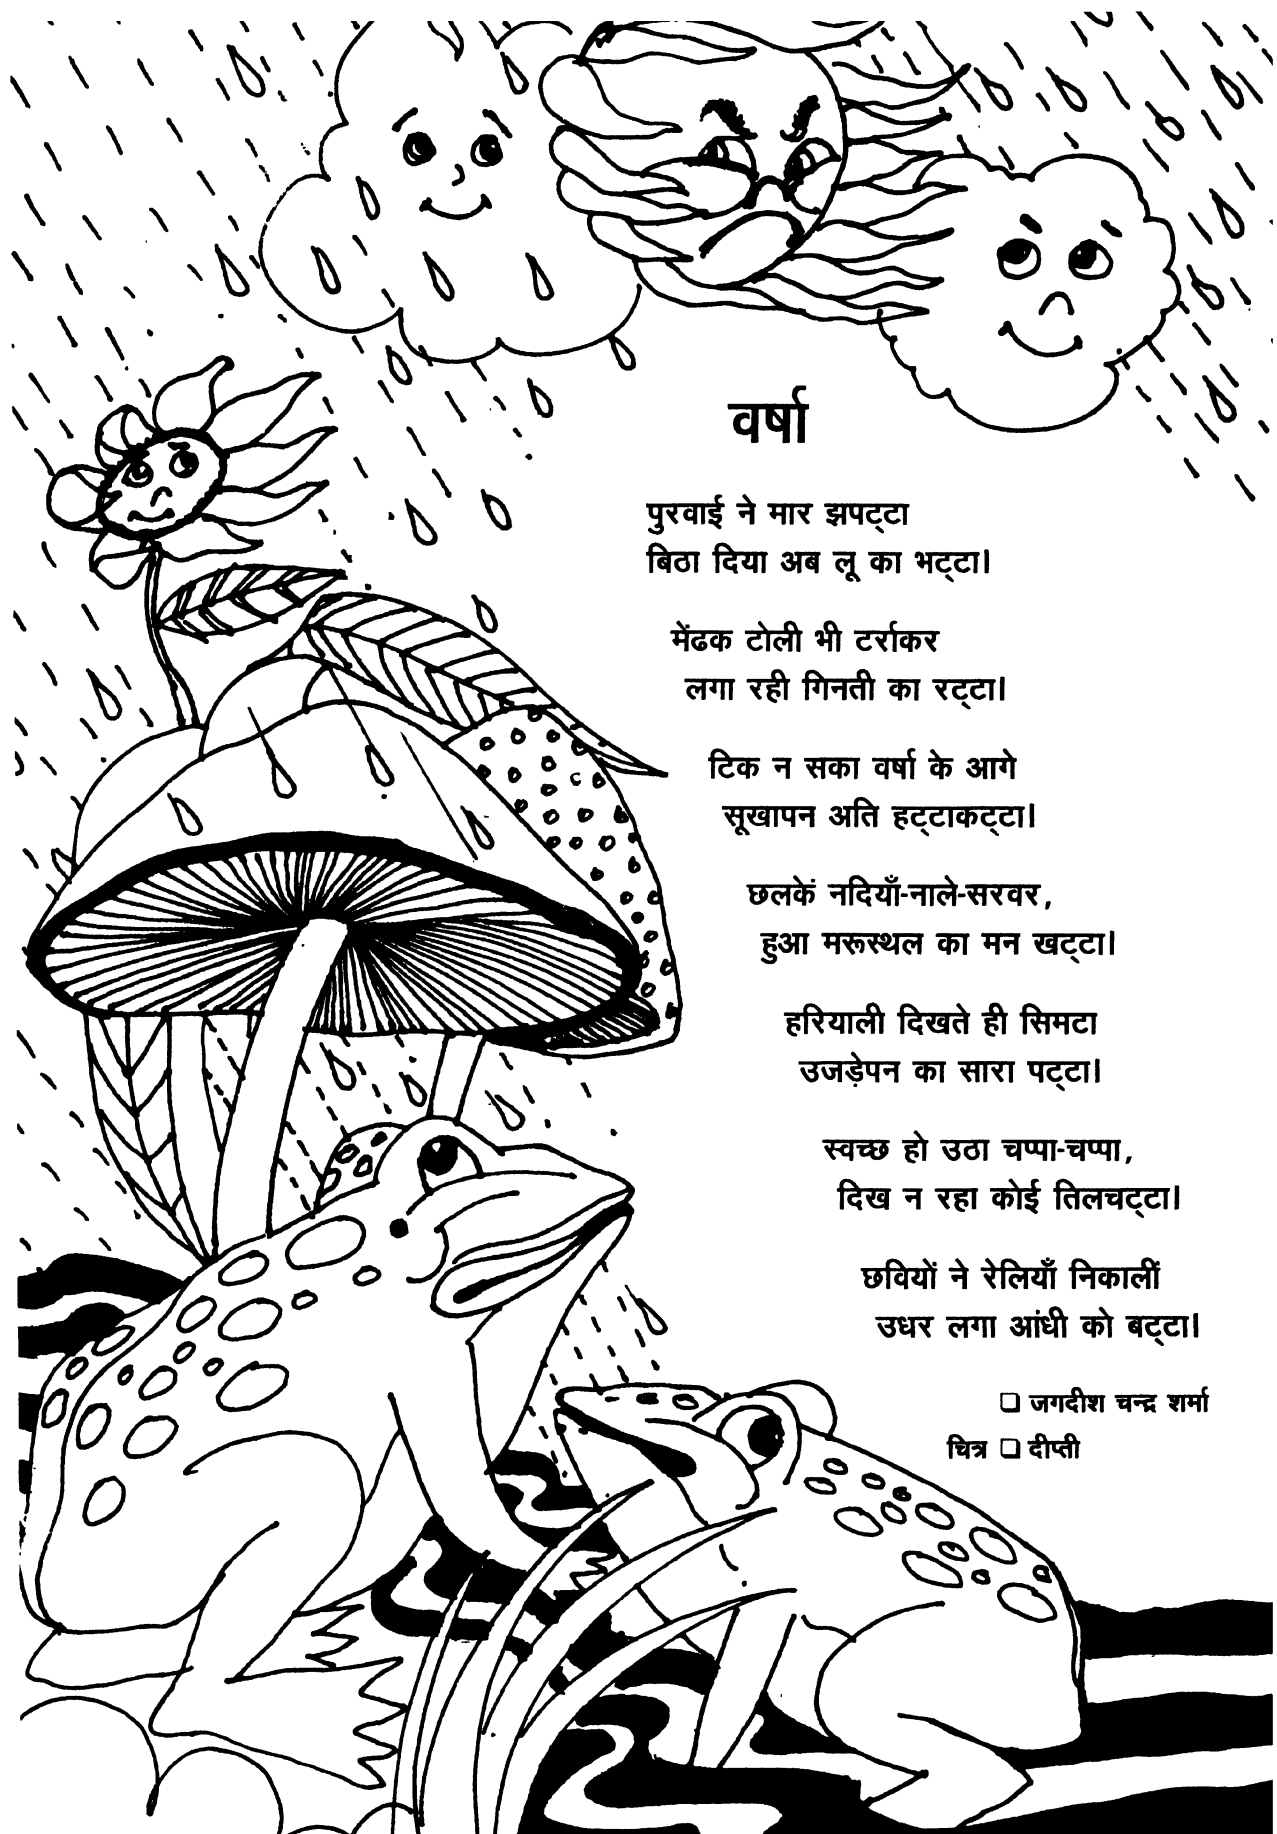 वर्षा
पुरवाई ने मार झपट्टा
बिठा दिया अब लू का भट्टा।
मेंढक टोली भी टर्राकर
लगा रही गिनती का रट्टा।
टिक न सका वर्षा के आगे
सूखापन अति हट्टाकट्टा।
छलकें नदियाँ-नाले-सरवर,
हुआ मरूस्थल का मन खट्टा।
हरियाली दिखते ही सिमटा
उजड़ेपन का सारा पट्टा।
स्वच्छ हो उठा चप्पा-चप्पा,
दिख न रहा कोई तिलचट्टा।
छवियों ने रेलियाँ निकालीं
उधर लगा आंधी को बट्टा।
❑ जगदीश चन्द्र शर्मा
चित्र ❑ दीप्ती